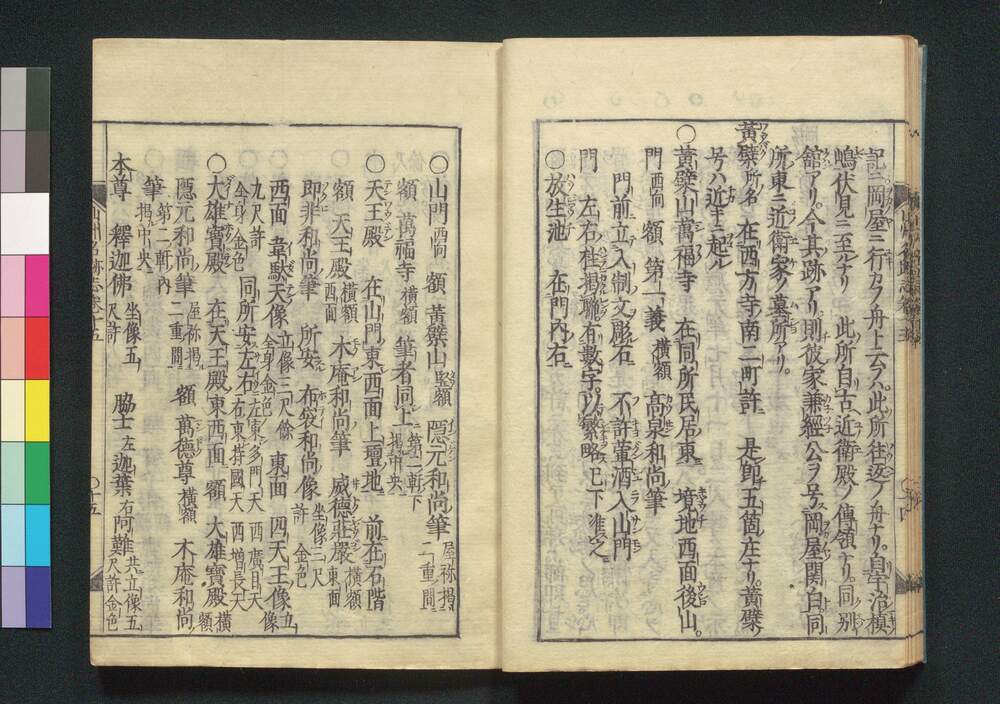 記ニ岡屋ニ行カフ舟上云ハ此所往返ノ舟ナリ自宇治槙
嶋伏見ニ至ルナリ 此所自古近衛殿ノ傳領ナリ同别
館アリ今其跡アリ則彼家兼經公ヲ号岡屋関白同
所東ニ近衛家ノ墓所アリ
黄檗所名 在西方寺南二町許 是卽五箇庄ナリ黄檗
号ハ近キニ起ル
〇黄檗山萬福寺 在同所民居東 境地西面後山
門西向 額 第一義横額 高泉和尚筆
門前立入制文彫石 不許葷酒入山門
門 左右柱掲聯有數字以繁略已下准之
〇放生池 在門內右
〇山門西向 額 黄檗山竪額 隠元和尚筆屋祢掲二重間
額 萬福寺横額 筆者同上第一軒下掲中央
〇天王殿 在山門東西面上壇地 前在石階
額 天王殿横額西面 木庵和尚筆 威德莊嚴横額東面
即非和尚筆 所安 布袋和尚像坐像三尺許金色
西面 韋駄天像立像三尺餘全身金色 東面 四天王像五
九尺許全身金色 同所安左右左東多門天 西廣目天右東持國天 西增長天像
〇大雄寶殿 在天王殿東西面 額 大雄寶殿横額
隠元和尚筆屋祢掲二重間 額 萬德尊横額 木庵和尚
筆第二軒內掲中央
本尊 釋迦佛坐像五尺許 脇士左迦葉右阿難共立像五尺許金色
山州名跡志卷十五
〇十五